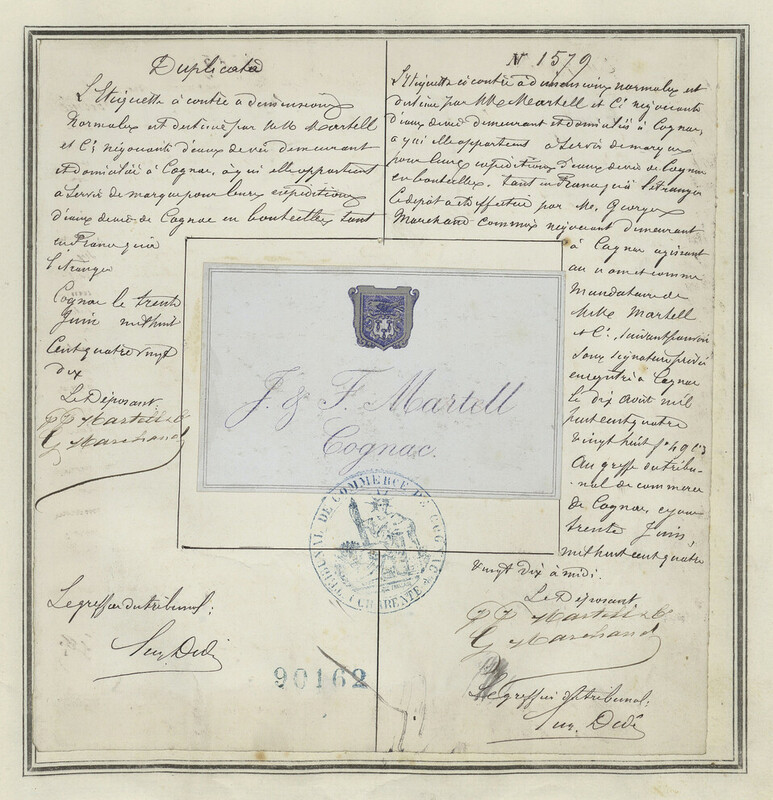 Duplicata
L'Etiquette ci contre a dimensions
Normales est destinée par MM Martell
et Cie négociants d'eaux de vie demeurant
et domiciliés à Cognac, à qui elle appartient
à servir de marque pour leurs expéditions
d'eaux de vie de Cognac en bouteilles tant
en France qu'à
l'étranger
Cognac le trente
Juin mil huit
Cent quatre vingt
dix
Le Déposant
Martell & C
G Marchand
Le greffier du tribunal:
N 1579
L'Etiquette ci contre a dimensions normales est
destinée par MM Martell et Cie négociants
d'eaux de vie demeurant et domiciliés à Cognac,
à qui elle appartient à servir de marque
pour leurs expéditions d'eaux de vie de Cognac
en bouteilles, tant en France qu'à l'étranger
Le dépôt a été effectué par Mr. Georges
Marchand commis négociant demeurant
à Cognac agissant
au nom et comme
Mandataire de
MM Martell
et Cie, suivant pouvoir
sous signature privée
enregistré à Cognac
le dix Août mil
huit cent quatre
vingt huit fo 49
Au greffe du tribu-
nal de commerce
de Cognac, ce jour
trente Juin,
mil huit cent quatre
vingt dix à midi.
Le Déposant
Martell & C
G Marchand
Le greffier du tribunal:
J. & F. Martell
Cognac.
TRIBUNAL DE COMMERCE DE COGNAC
(CHARENTE)
90162